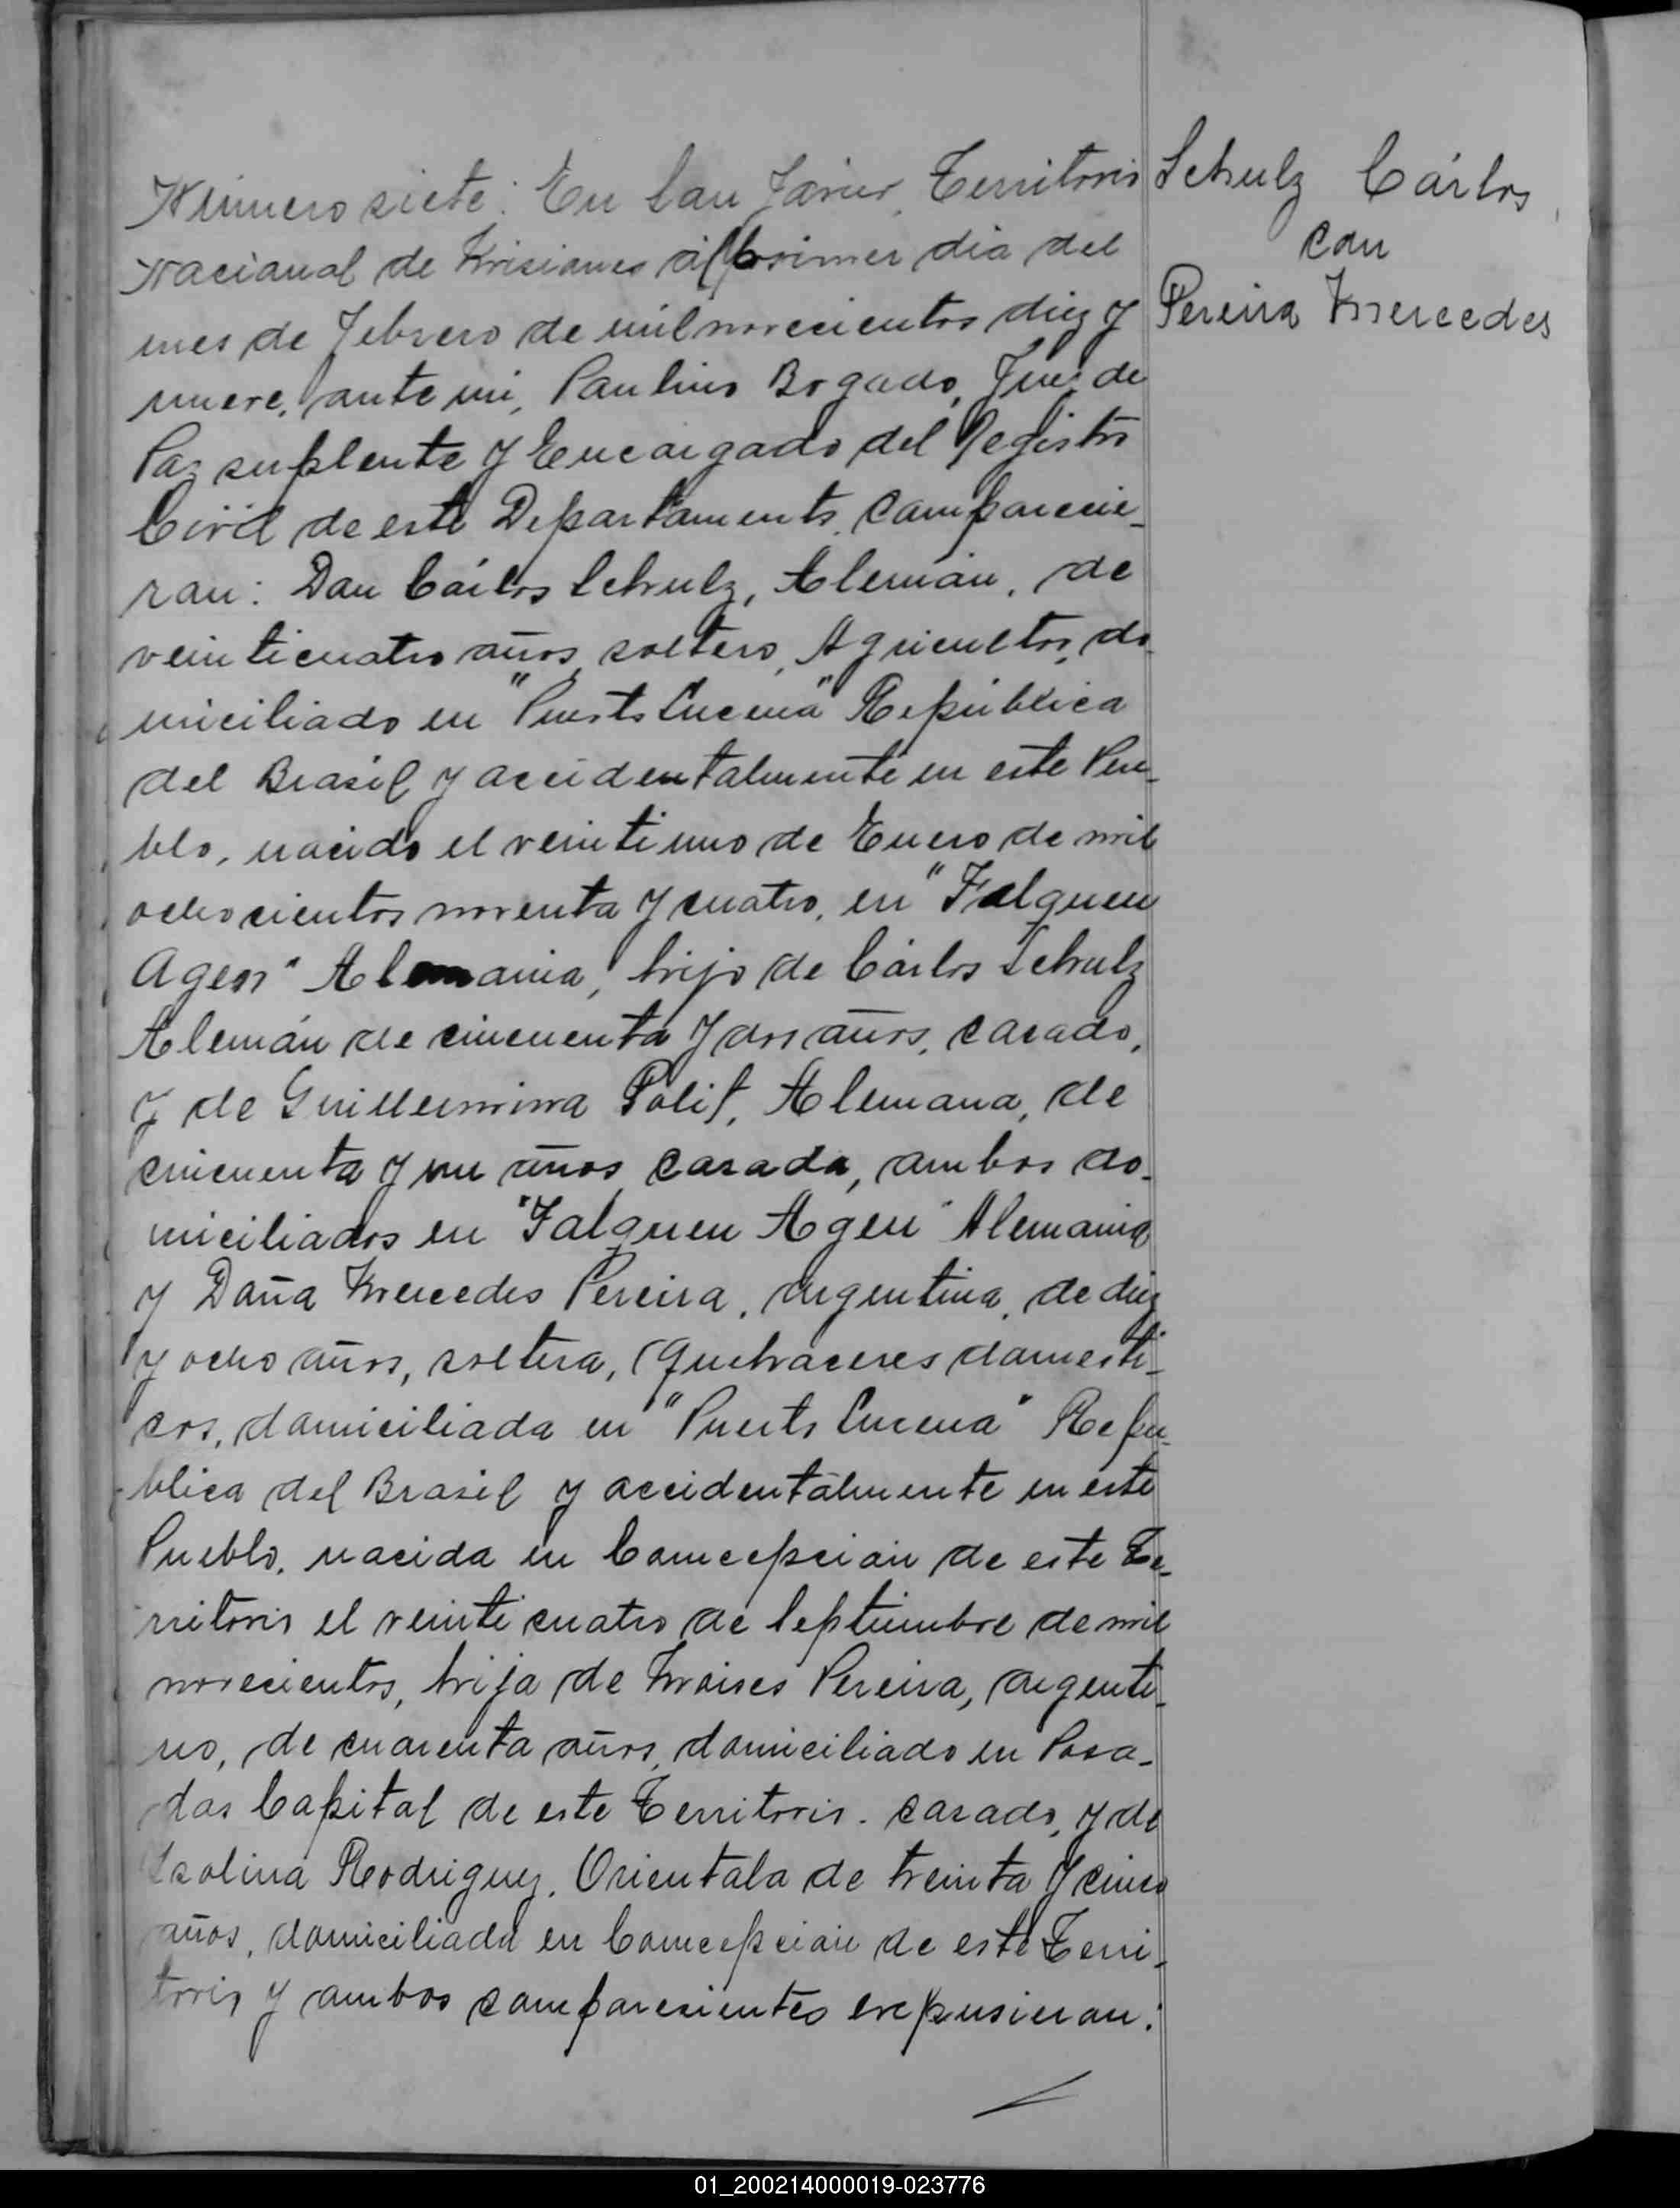 Número siete: En San Javier, Territorio
Nacional de Misiones á primer dia del
mes de Febrero de mil novecientos diez y
nueve, ante mi, Paulino Bogado, Juez de
Paz suplente y Encargado del Registro
Civil de este Departamento, comparecie-
ron: Don Cárlos Schulz, Alemán, de
veinticuatro años, soltero, Agricultor, do-
miciliado en "Puerto Lucena" República
del Brasil y accidentalmente en este Pue-
blo, nacido el veintiuno de Enero de mil
ochocientos noventa y cuatro, en "Falquen
Agen" Alemania, hijo de Cárlos Schulz
Alemán de cincuenta y dos años, casado,
y de Guillermina Polit, Alemana, de
cincuenta y un años casada, ambos do-
miciliados en "Falquen Agen" Alemania
y Doña Mercedes Pereira, argentina, de diez
y ocho años, soltera, quehaceres domesti-
cos, domiciliada en "Puerto Lucena" Repu-
blica del Brasil y accidentalmente en este
Pueblo, nacida en Concepción de este Te-
rritorio el veinticuatro de Septiembre de mil
novecientos, hija de Moises Pereira, argenti-
no, de cuarenta años, domiciliado en Posa-
das Capital de este Territorio. casado, y de
Isolina Rodriguez, Orientala de treinta y cinco
años, domiciliada en Concepción de este Terri-
torio y ambos comparecientes expusieron:
Schulz Cárlos
con
Pereira Mercedes
01_200214000019-023776